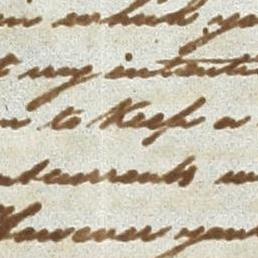 in which yo
t my intenti
n to keep a
However you